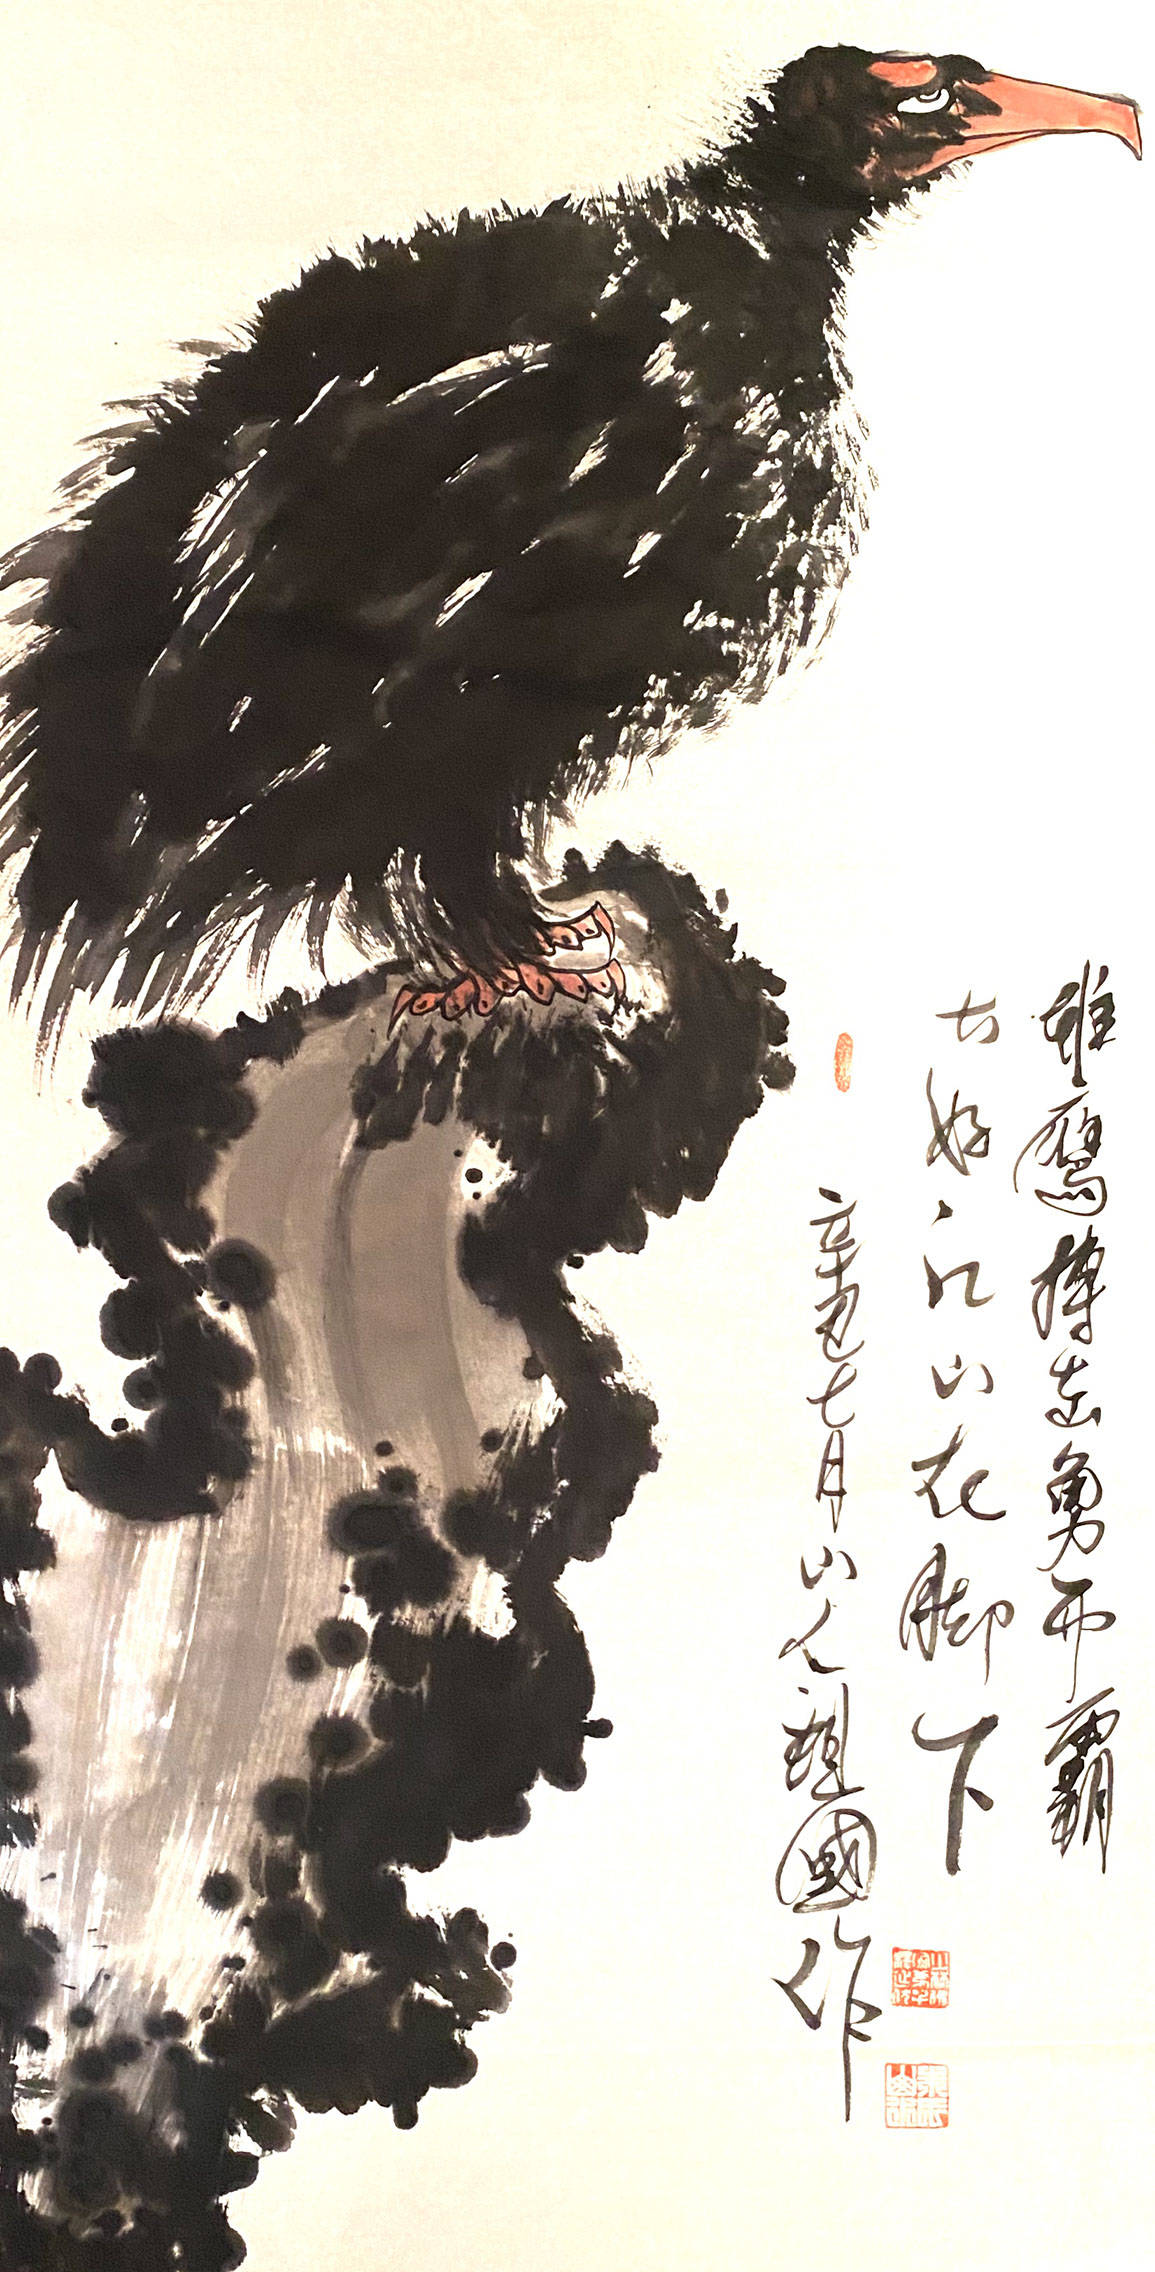 雄鹰搏击勇而霸
大好江山在脚下
辛丑七月山人國作